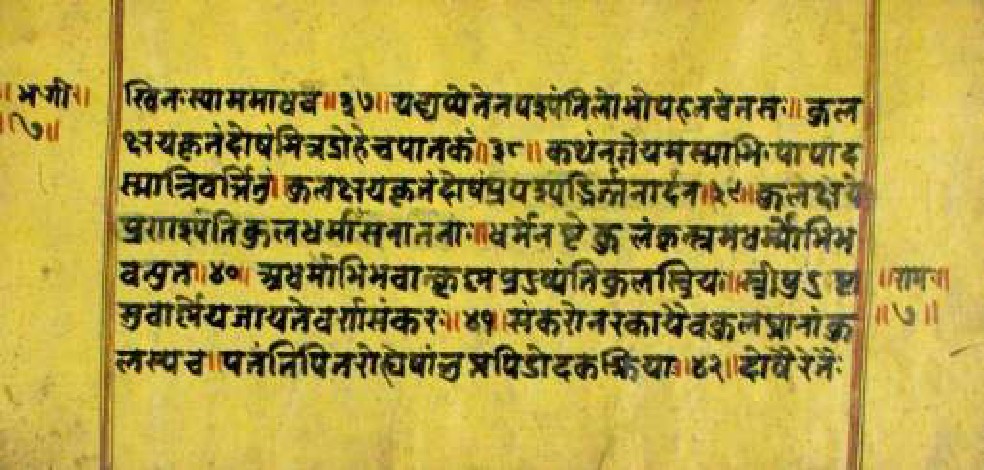 ॥भ॰गी॰॥
॥७॥
खिनःस्याममाधव॥३७॥यद्यप्येतेनपश्यंतिलोभोपहतचेतसः॥कुल
क्षयकृतंदोषंमित्रद्रोहेचपातकं॥३८॥कथंनज्ञेयमस्माभिःपापाद
स्मान्निवर्त्तितुं॥कुलक्षयकृतंदोषंप्रपश्यद्भिर्जनार्दन॥३९॥कुलक्षये
प्रणश्यंतिकुलधर्माःसनातनाः॥धर्मेनष्टेकुलंकृत्स्नमधर्मोभिभ
वत्युत॥४०॥अधर्माभिभवात्कृष्णप्रदुष्यंतिकुलस्त्रियः॥स्त्रीषुदुष्टा
सुवार्ष्णेयजायतेवर्णसंकरः॥४१॥संकरोनरकायैवकुलघ्नानांकु
लस्यच॥पतंतिपितरोह्येषांलुप्तपिंडोदकक्रियाः॥४२॥दोषैरेतैः
॥रामः॥
॥७॥